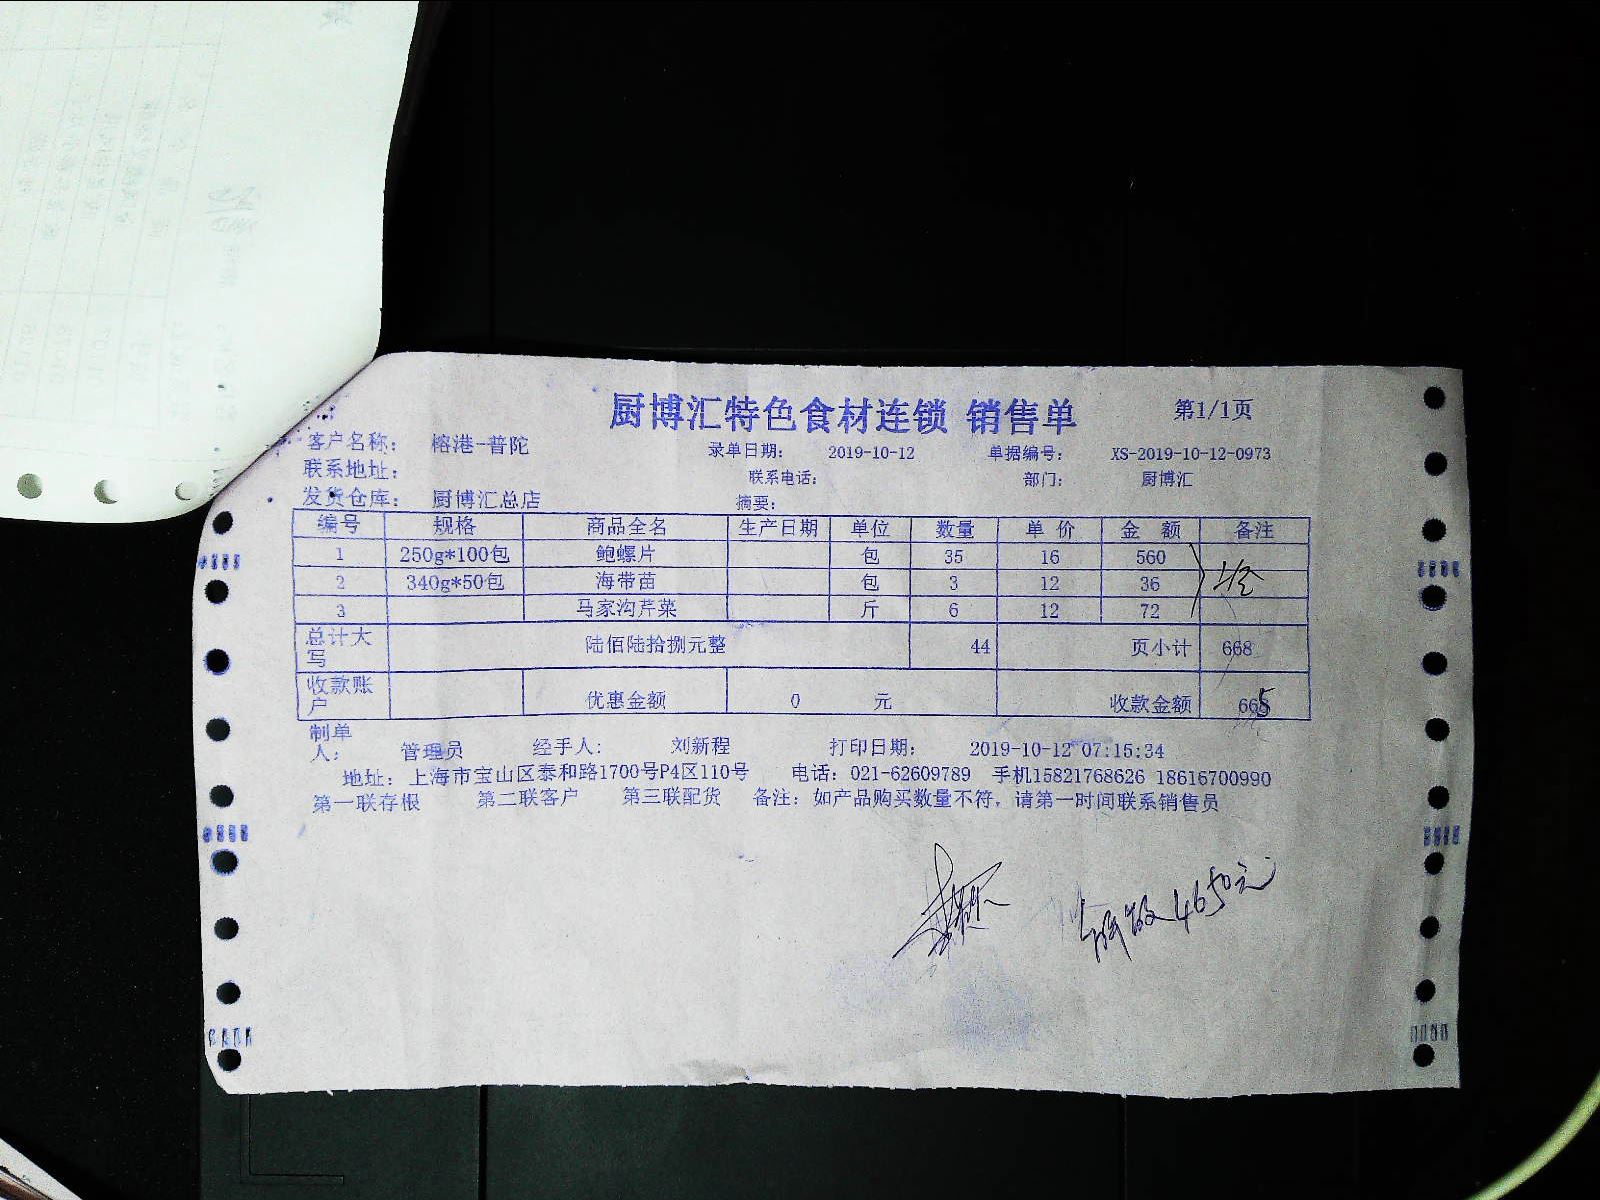 厨博汇特色食材连锁 销售单 第1/1页
客户名称： 榕港-普陀 录单日期： 2019-10-12 单据编号： XS-2019-10-12-0973
联系地址： 联系电话： 部门： 厨博汇
发货仓库： 厨博汇总店 摘要：
编号 规格 商品全名 生产日期 单位 数量 单 价 金 额 备注
1 250g*100包 鲍螺片 包 35 16 560
2 340g*50包 海带苗 包 3 12 36
3 马家沟芹菜 斤 6 12 72
总计大写 陆佰陆拾捌元整 44 页小计 668
收款账户 优惠金额 0 元 收款金额 665
制单人： 管理员 经手人： 刘新程 打印日期： 2019-10-12 07:15:34
地址：上海市宝山区泰和路1700号P4区110号 电话：021-62609789 手机15821768626 18616700990
第一联存根 第二联客户 第三联配货 备注：如产品购买数量不符，请第一时间联系销售员